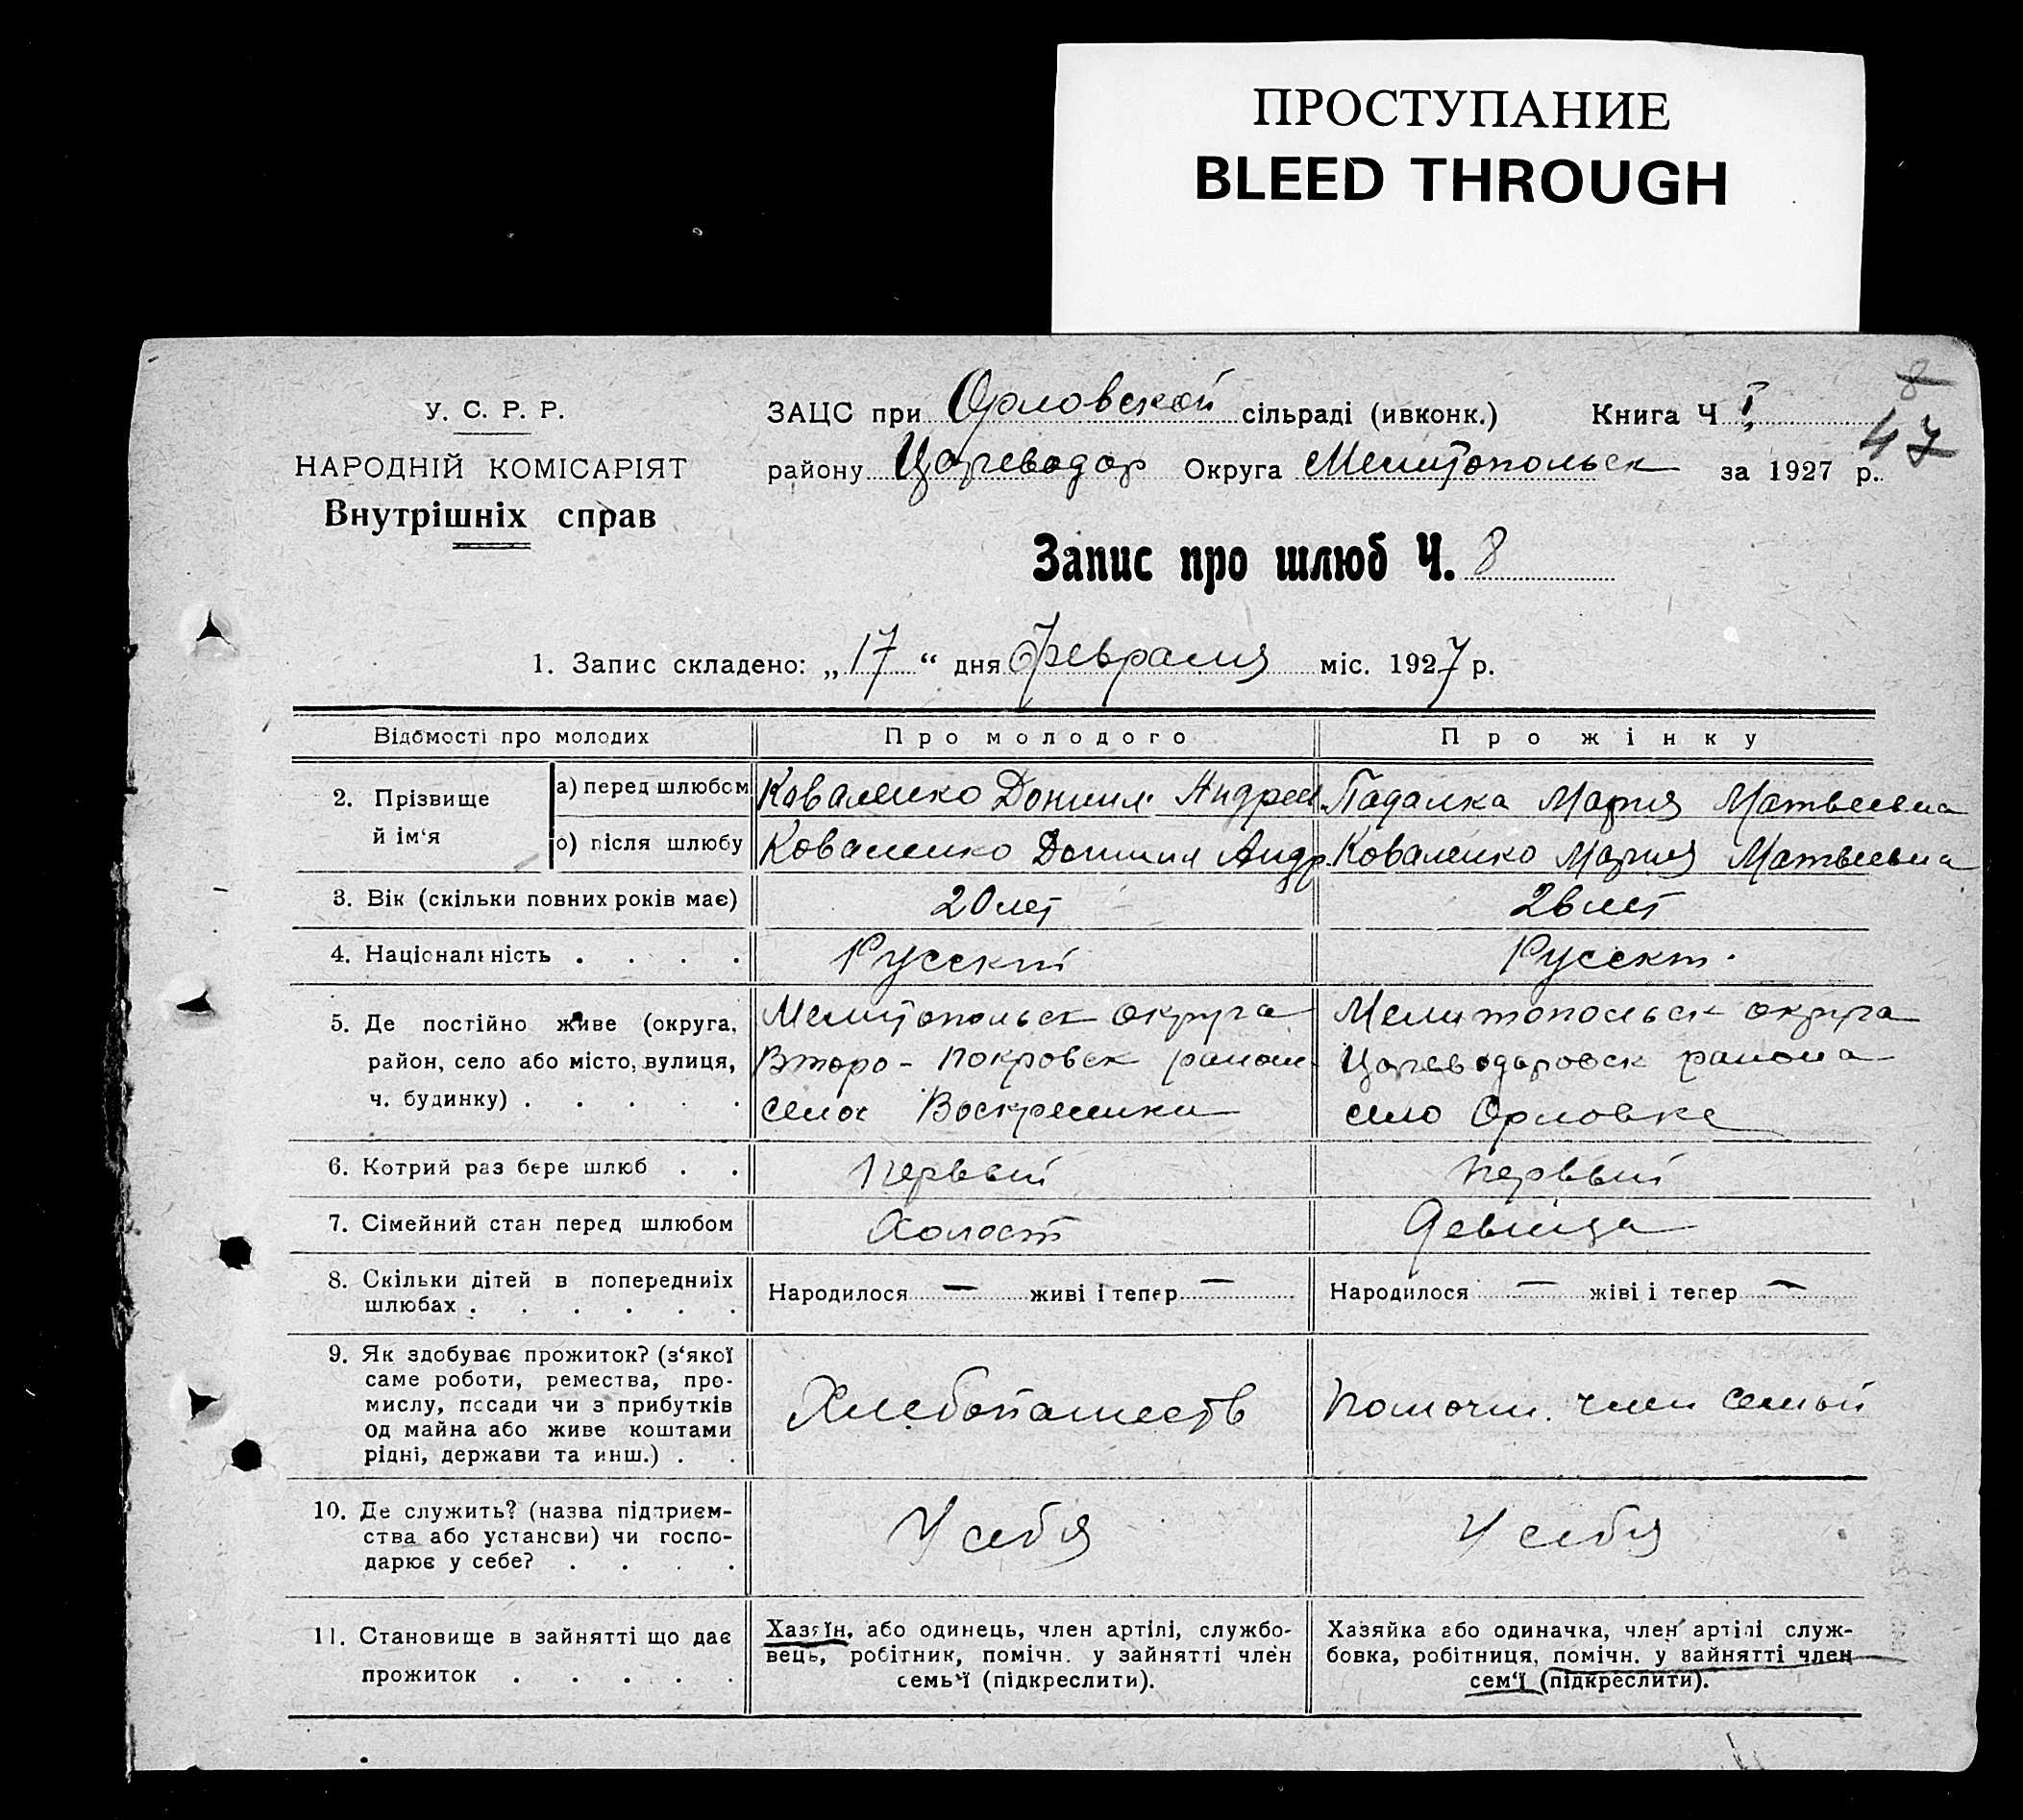 ПРОСТУПАНИЕ
BLEED THROUGH
8
47
У. С. Р. Р.
НАРОДНІЙ КОМІСАРІЯТ
Внутрішніх справ
ЗАЦС при Орловской сільраді (ивконк.) Книга Ч I
району Цареводар Округа Мелитопольск за 1927 р.
Запис про шлюб Ч. 8
1. Запис складено: „17“ дня Февраля міс. 1927 р.
Відомості про молодих Про молодого Про жінку
2. Прізвище й ім‘я
а) перед шлюбом Коваленко Даниил Андреев Падалка Мария Матвеевна
о) після шлюбу Коваленко Даниил Андр. Коваленко Мария Матвеевна
3. Вік (скільки повних років має) 20 лет 26 лет
4. Національність . . . . Русский Русск.
5. Де постійно живе (округа, Мелитопольск округа Мелитопольск округа
район, село або місто, вулиця, Второ-Покровск район Цареводаровск района
ч. будинку) . . . . . село Воскресенка село Орловка
6. Котрий раз бере шлюб . . Первый Первый
7. Сімейний стан перед шлюбом Холост Девица
8. Скільки дітей в попередниіх Народилося — живі і тепер — Народилося — жіві і тепер —
шлюбах . . . . . .
9. Як здобуває прожиток? (з‘якої
саме роботи, ремества, про-
мислу, посади чи з прибутків Хлебопашеств Помочн. член семьи
од майна або живе коштами
рідні, держави та инш.) . .
10. Де служить? (назва підприєм-
ства або установи) чи госпо- У себя У себя
дарює у себе? . . . .
11. Становище в зайнятті що дає
прожиток . . . . .
Хазяїн, або одинець, член артілі, службо-
вець, робітник, помічн. у зайнятті член
семь‘ї (підкреслити).
Хазяйка або одиначка, член артілі служ-
бовка, робітниця, помічн. у зайнятті член
сем‘ї (підкреслити).